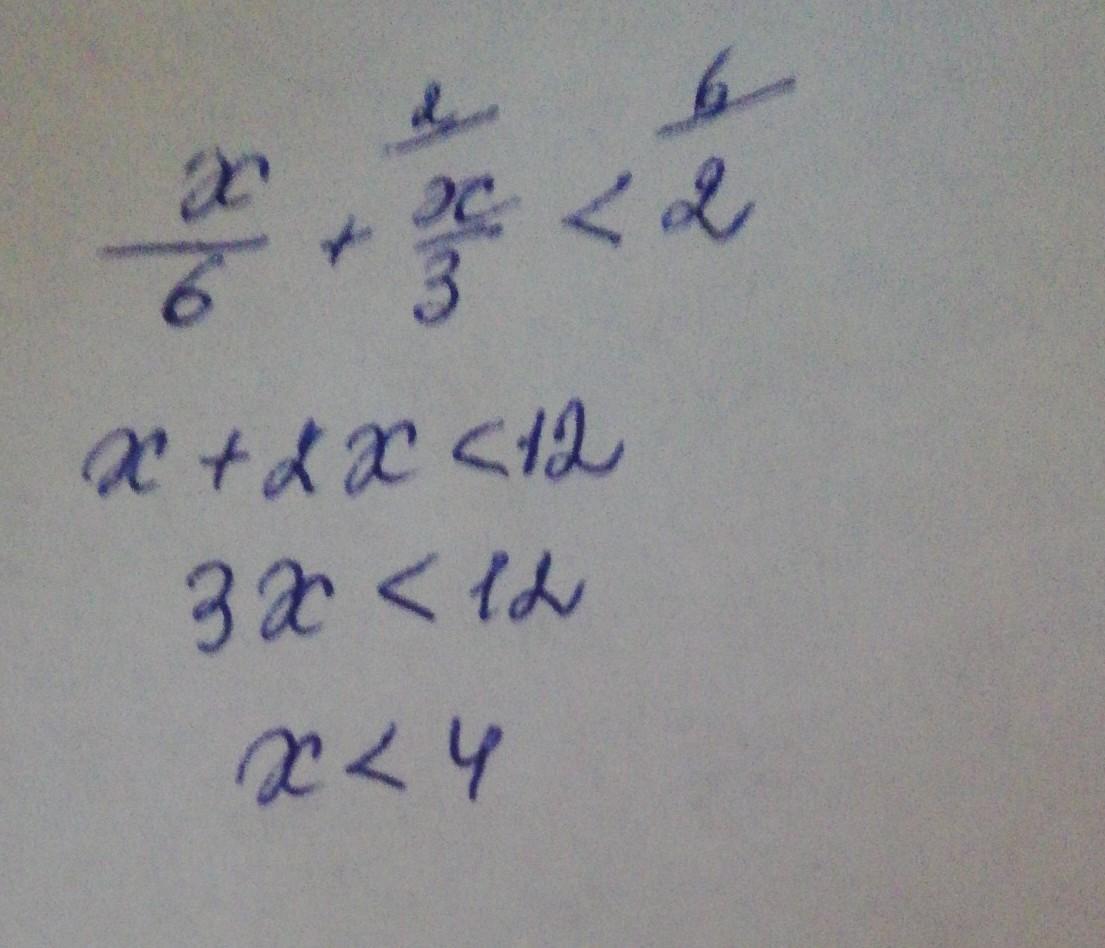 x/6 + 2/ x/3 < 6/ 2
x + 2x < 12
3x < 12
x < 4